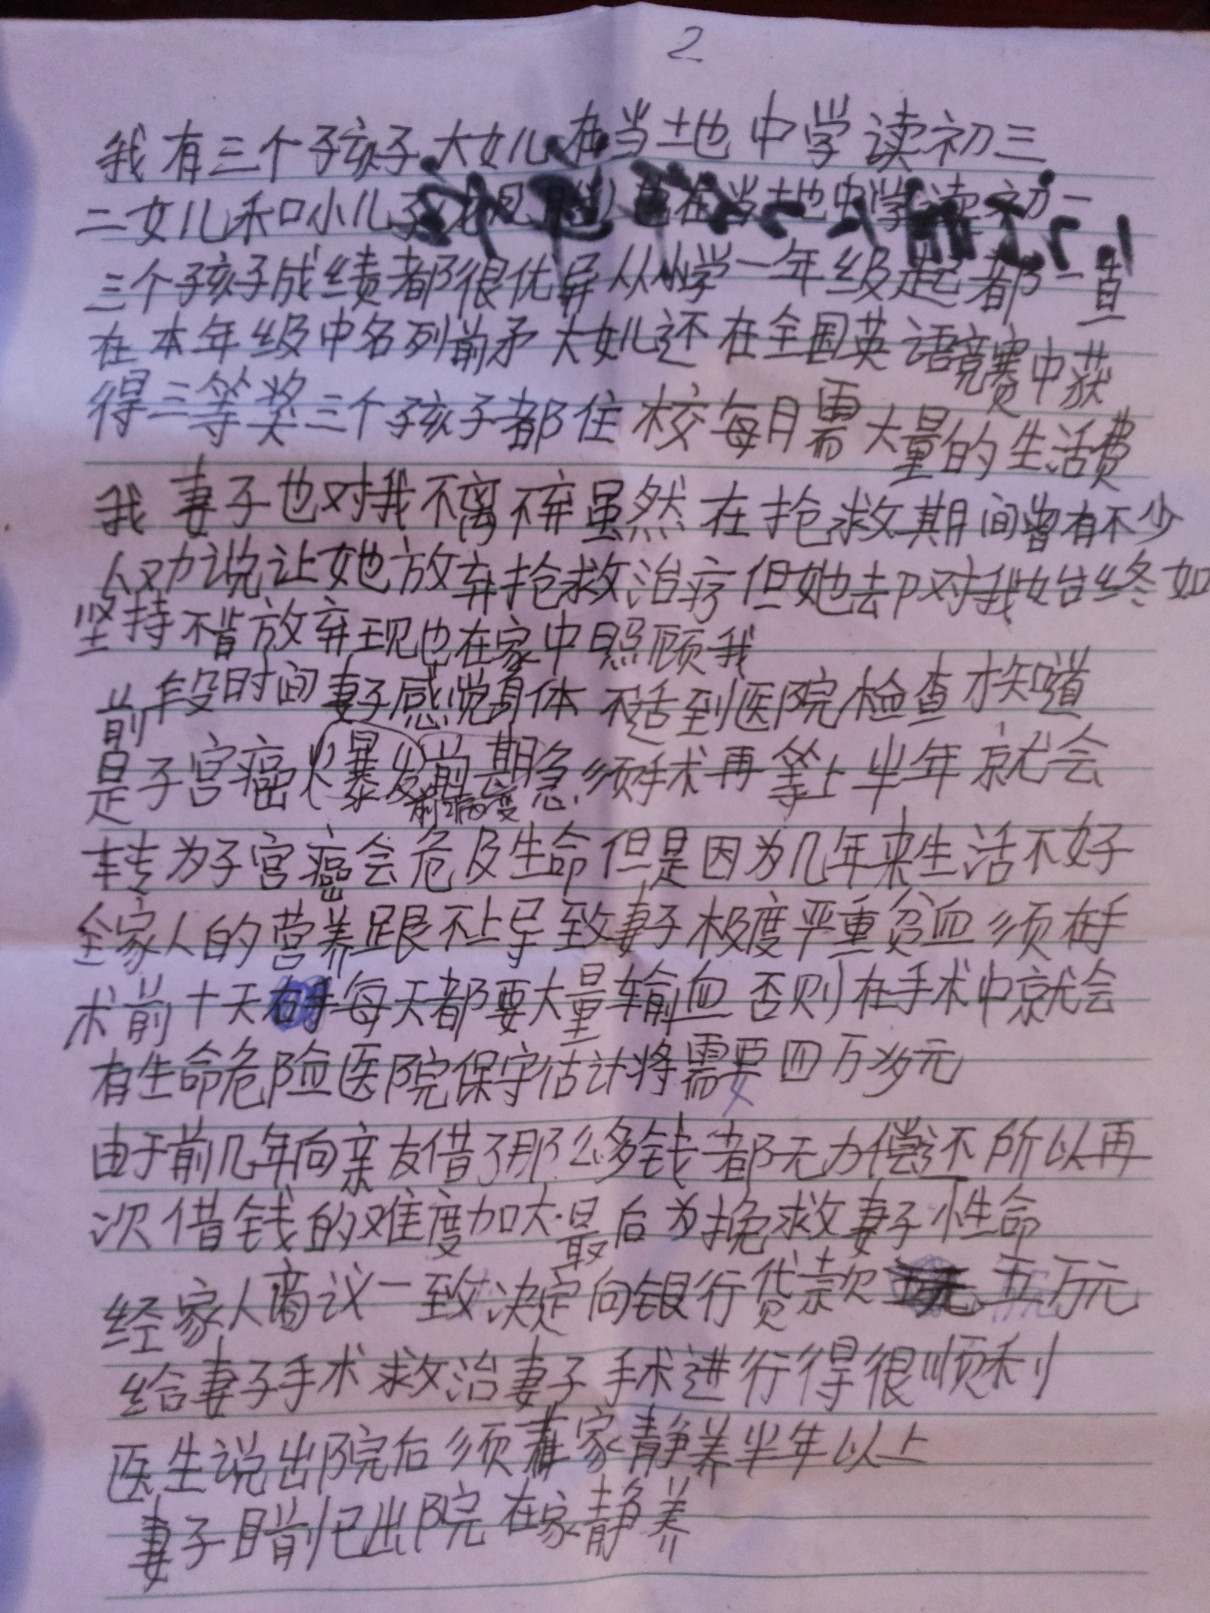 2
我有三个孩子大女儿在当地中学读初三
二女儿和小儿子在当地中学读初一
三个孩子成绩都很优异从小学一年级起都一直
在本年级中名列前矛大女儿还在全国英语竞赛中获
得三等奖三个孩子都住校每月需大量的生活费
我妻子也对我不离不弃虽然在抢救期间曾有不少
人劝说让她放弃抢救治疗但她却对我始终如
坚持不肯放弃现也在家中照顾我
前段时间妻子感觉身体不适到医院检查才知道
是子宫癌爆发前期急须手术再等上半年就会
前病变
转为子宫癌会危及生命但是因为几年来生活不好
全家人的营养跟不上导致妻子极度严重贫血须在手
术前十天每天都要大量输血否则在手术中就会
有生命危险医院保守估计将需要四万多元
由于前几年向亲友借了那么多钱都无力偿还所以再
次借钱的难度加大最后为挽救妻子性命
经家人商议一致决定向银行贷款五万元
给妻子手术救治妻子手术进行得很顺利
医生说出院后须在家静养半年以上
妻子目前已出院在家静养